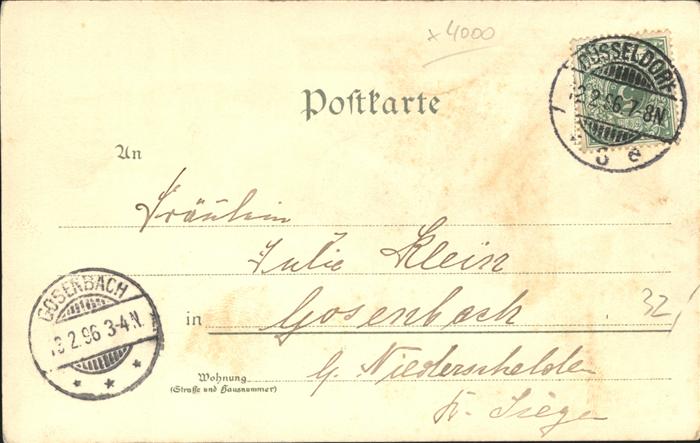 x 4000
DÜSSELDORF
2.96 7-8N
Postkarte
An
Fräulein
Julie Klein
GOSENBACH
13.2.96 3-4N
in Gosenbach
32
b. Niederschelden
Wohnung
(Straße und Hausnummer)
Kr. Siegen